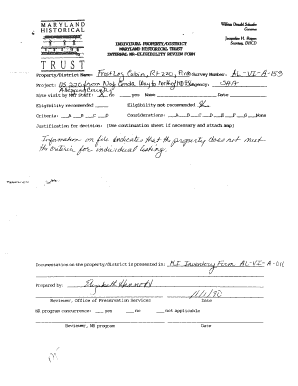 MARYLAND
HISTORICAL
TRUST
William Donald Schaefer
Governor
Jacqueline H. Rogers
Secretary, DHCD
INDIVIDUAL PROPERTY/DISTRICT
MARYLAND HISTORICAL TRUST
INTERNAL NR-ELIGIBILITY REVIEW FORM
Property/District Name: Frost Log Cabin, Rt 220, Survey Number: AL-VI-A-159
Project: US 220 from Agency: SHA
Allegany County
Site visit by MHT Staff: X no yes Name Date
Eligibility recommended Eligibility not recommended X
Criteria: A B C D Considerations: A B C D E F G None
Justification for decision: (Use continuation sheet if necessary and attach map)
Information on file indicates that the property does not meet
the criteria for individual listing.
Documentation on the property/district is presented in: M.F. Inventory Form AL-VI-A-
Prepared by:
Elizabeth Hannold
Reviewer, Office of Preservation Services Date
NR program concurrence: yes no not applicable
Reviewer, NR program Date